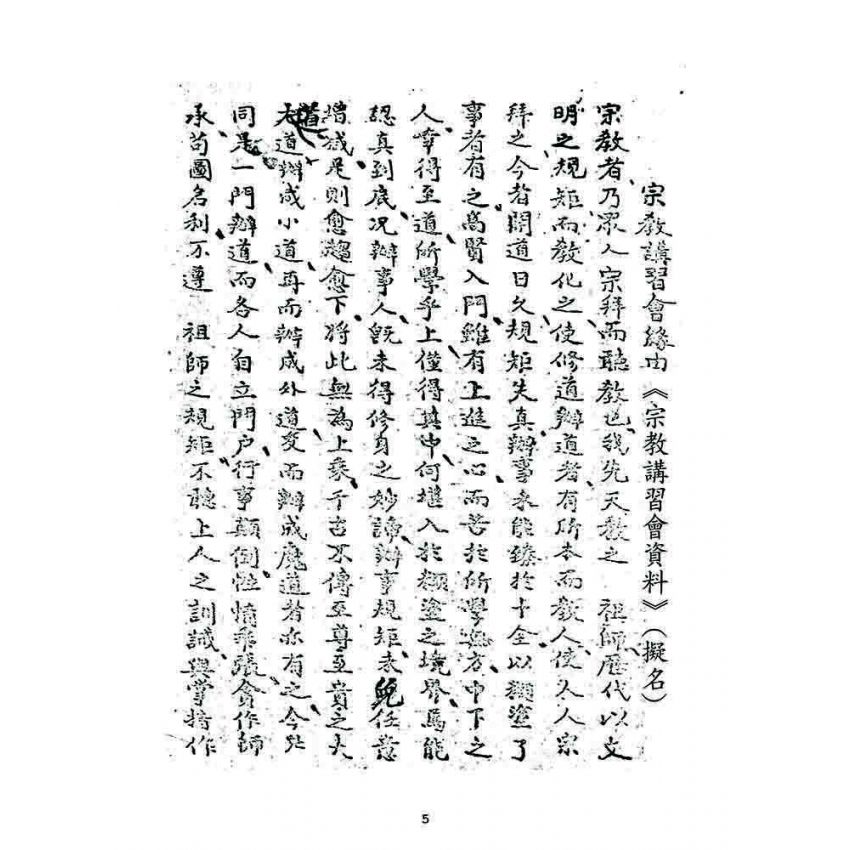 宗教講習會緣由《宗教講習會資料》（擬名）
宗教者乃眾人宗拜而聽教也我先天教之　祖師歷代以文
明之規矩而教化之使修道辦道者有所本而教人使久人宗
拜之今者開道日久規矩失真辦事未能臻於十全以糊塗了
事者有之高賢入門雖有上進之心而苦於所學無方中下之
人幸得至道所學乎上僅得其中何堪入於糊塗之境界焉能
認真到底况辦事人既未得修身之妙諦辦事規矩未免任意
增減是則愈趨愈下將此無為上乘千古不傳至尊至貴之大
道大道辦成小道再而辦成外道变而辦成魔道者亦有之今
同是一門辦道而各人自立門户行事顛倒性情乖張貪作師
承苟圖名利不遵　祖師之規矩不聽上人之訓誡與掌持作
5